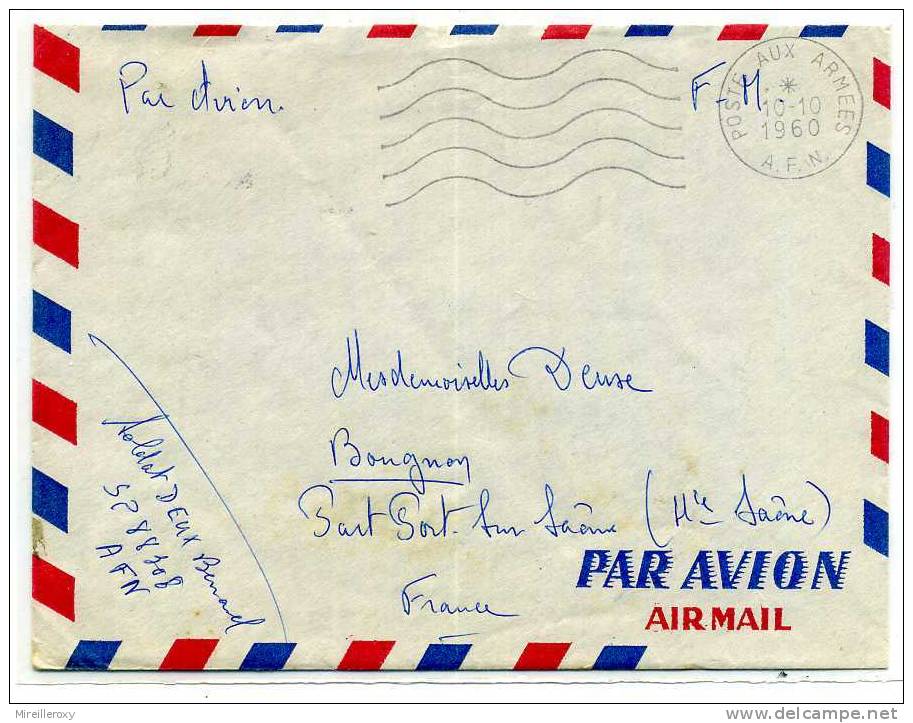 Par Avion.
F-M.
POSTE AUX ARMEES
*
10-10
1960
A.F.N.
Mesdemoiselles Deuse
Bougnon
Par Port-Sur Saône (Hte Saône)
France
PAR AVION
AIR MAIL
Soldat DEUX Bernard
SP 88308
AFN
Mireilleroxy
delcampe.net